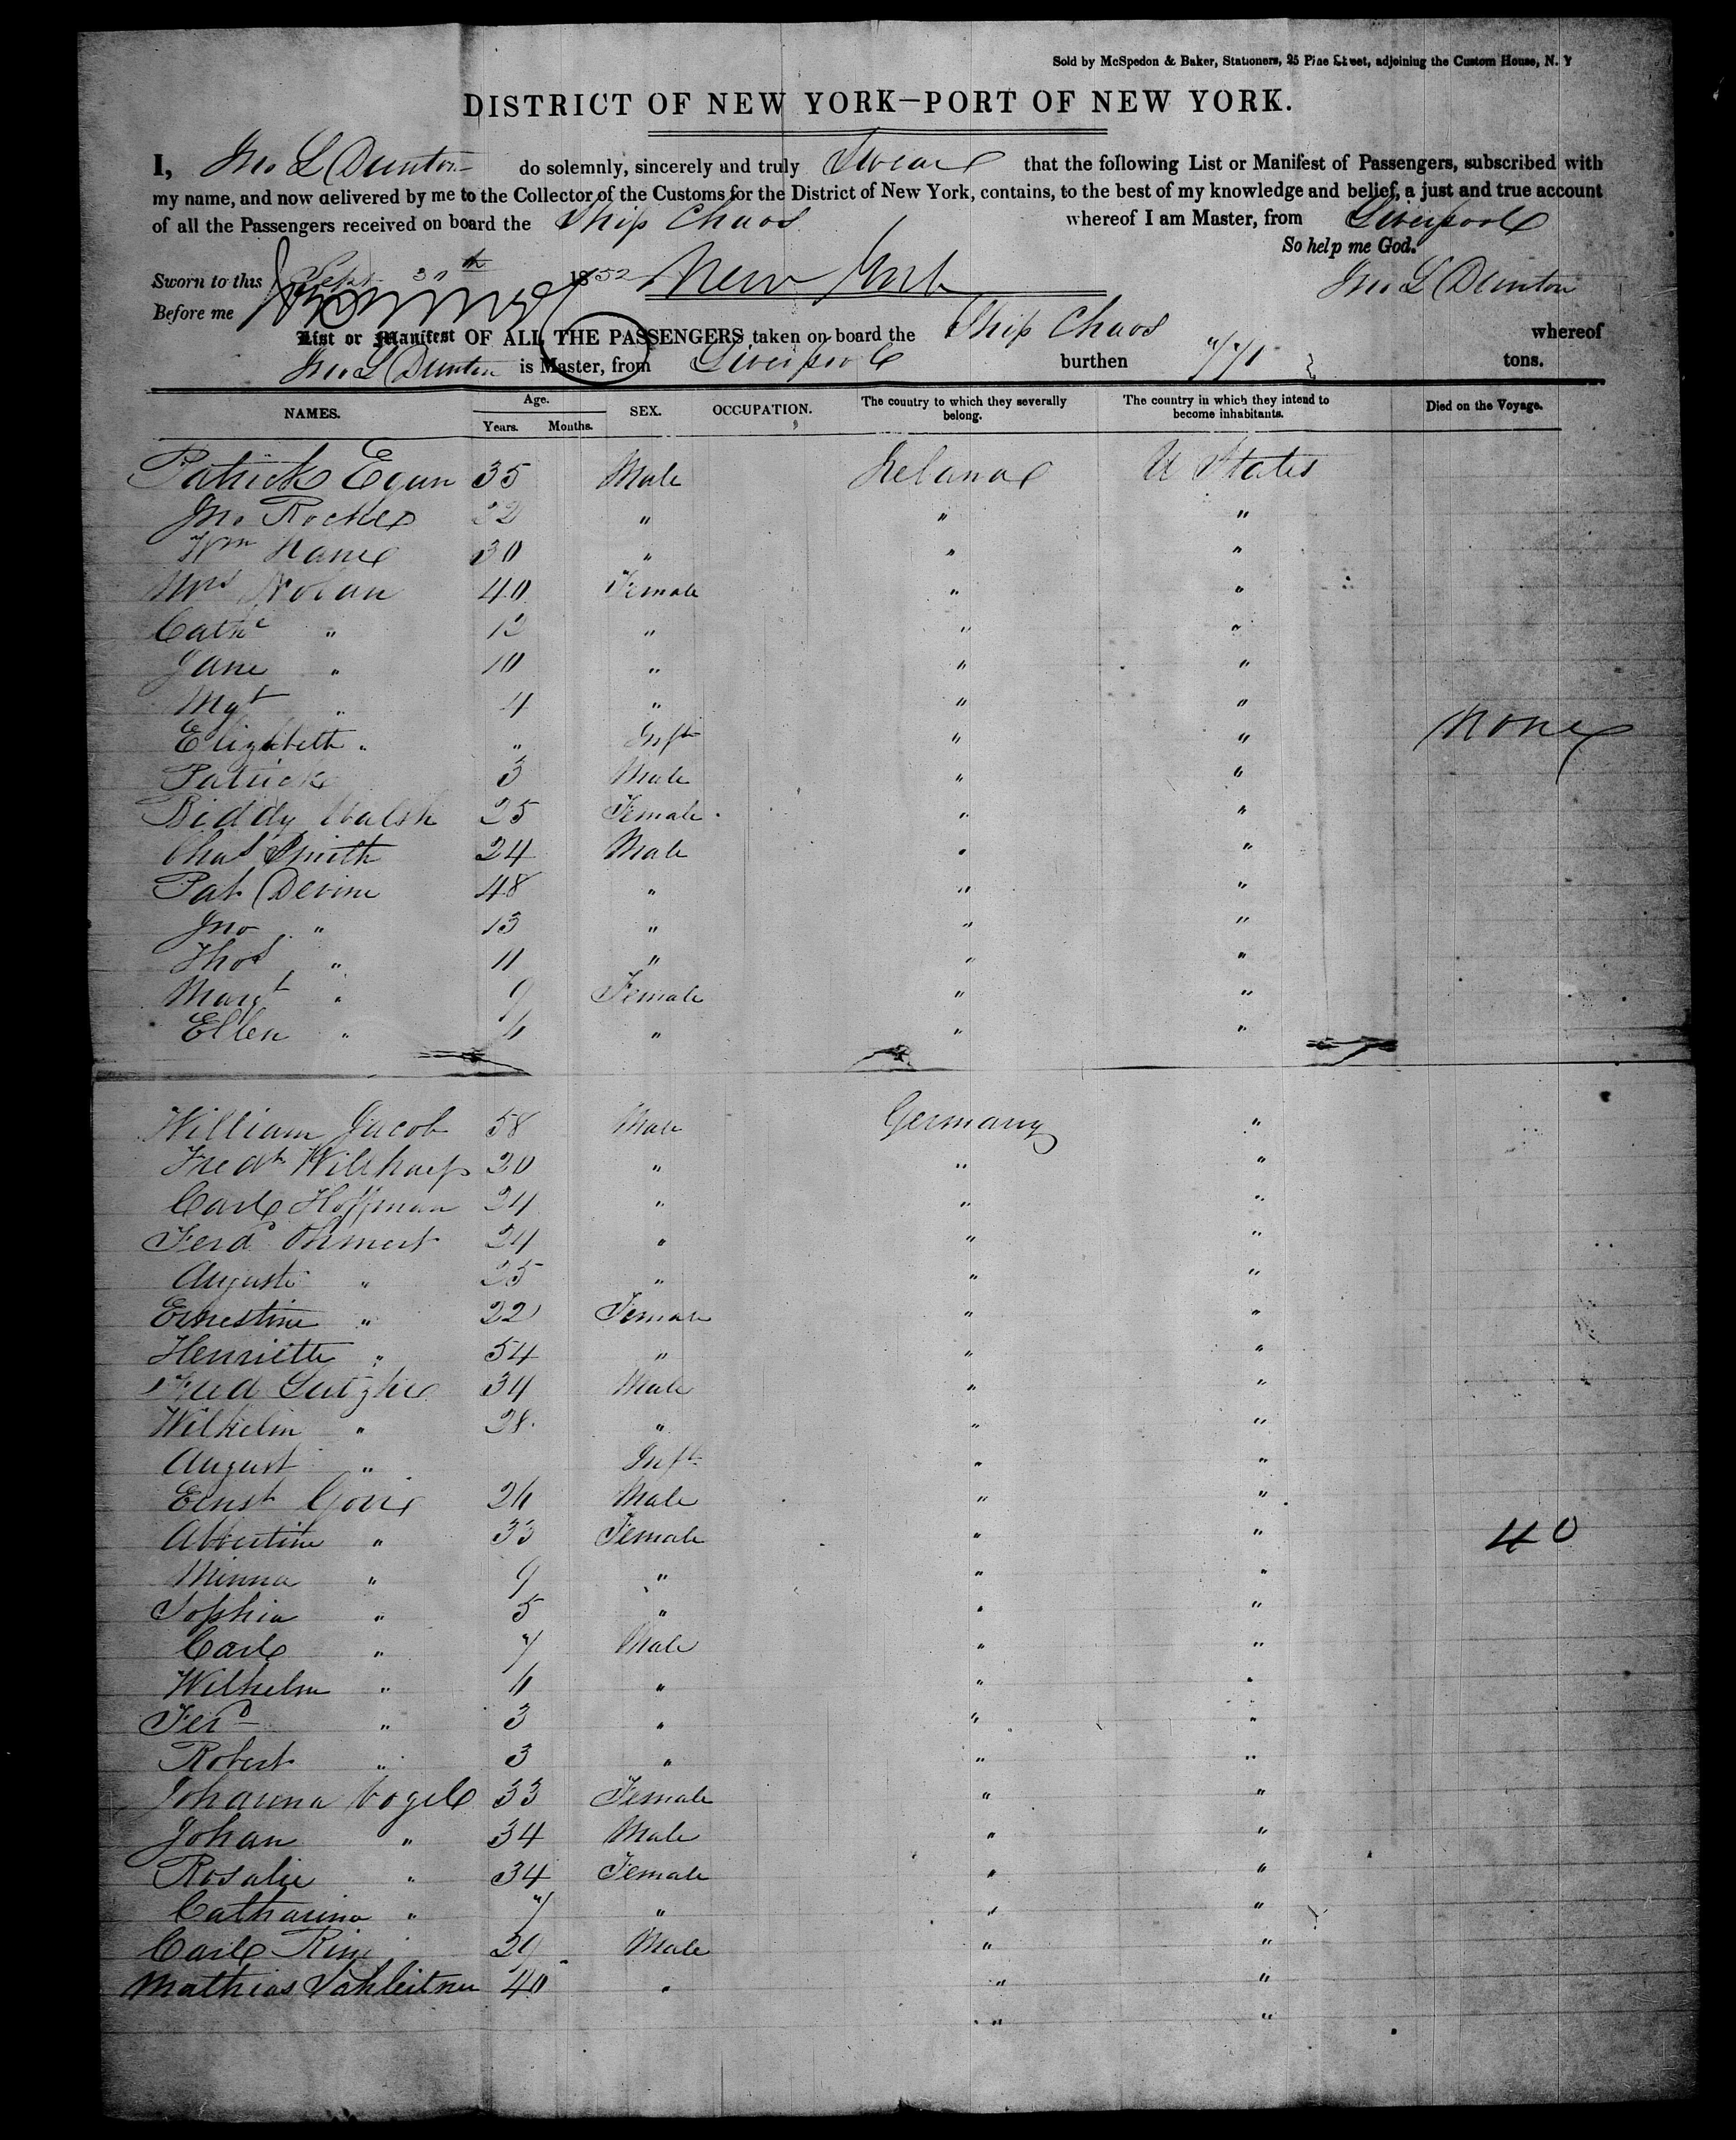 Sold by McSpedon & Baker, Stationers, 25 Pine Street, adjoining the Custom House, N. Y
DISTRICT OF NEW YORK—PORT OF NEW YORK.
I, Jno L Dunton do solemnly, sincerely and truly Swear that the following List or Manifest of Passengers, subscribed with
my name, and now delivered by me to the Collector of the Customs for the District of New York, contains, to the best of my knowledge and belief, a just and true account
of all the Passengers received on board the Ship Chaos whereof I am Master, from Liverpool
So help me God.
Sworn to this Sept 30th 1852 New York Jno L Dunton
Before me
List or Manifest OF ALL THE PASSENGERS taken on board the Ship Chaos whereof
Jno L Dunton is Master, from Liverpool burthen 771 tons.
NAMES. Age. Years. Months. SEX. OCCUPATION. The country to which they severally belong. The country in which they intend to become inhabitants. Died on the Voyage.
Patrick Egan 35 Male Ireland U States
Jno Roche 22 " " "
Wm Kane 30 " " "
Mrs Nolan 40 Female " "
Cathe " 12 " " "
Jane " 10 " " "
Mgt " 4 " " "
Elizabeth " " Inft " " None
Patrick 3 Male " "
Biddy Walsh 25 Female " "
Chas Smith 24 Male " "
Pat Devine 48 " " "
Jno " 13 " " "
Thos " 11 " " "
Margt " 9 Female " "
Ellen " 6 " " "
William Jacob 58 Male Germany "
Fredk 20 " " "
Carl Hoffman 24 " " "
Ferd 24 " " "
Auguste " 25 " " "
Ernestine " 22 Female " "
Henriette " 54 " " "
Fred 34 Male " "
Wilhelm " 28 " " "
August " Inft " "
Ernst 26 Male " "
Albertine " 33 Female " " 40
Minna " 9 " " "
Sophia " 5 " " "
Carl " 7 Male " "
Wilhelm " 6 " " "
Ferd " 3 " " "
Robert " 3 " " "
Johanna Vogel 33 Female " "
Johan " 34 Male " "
Rosalie " 34 Female " "
Catharina " 7 " " "
Carl 29 Male " "
Mathias 40 " " "
" "